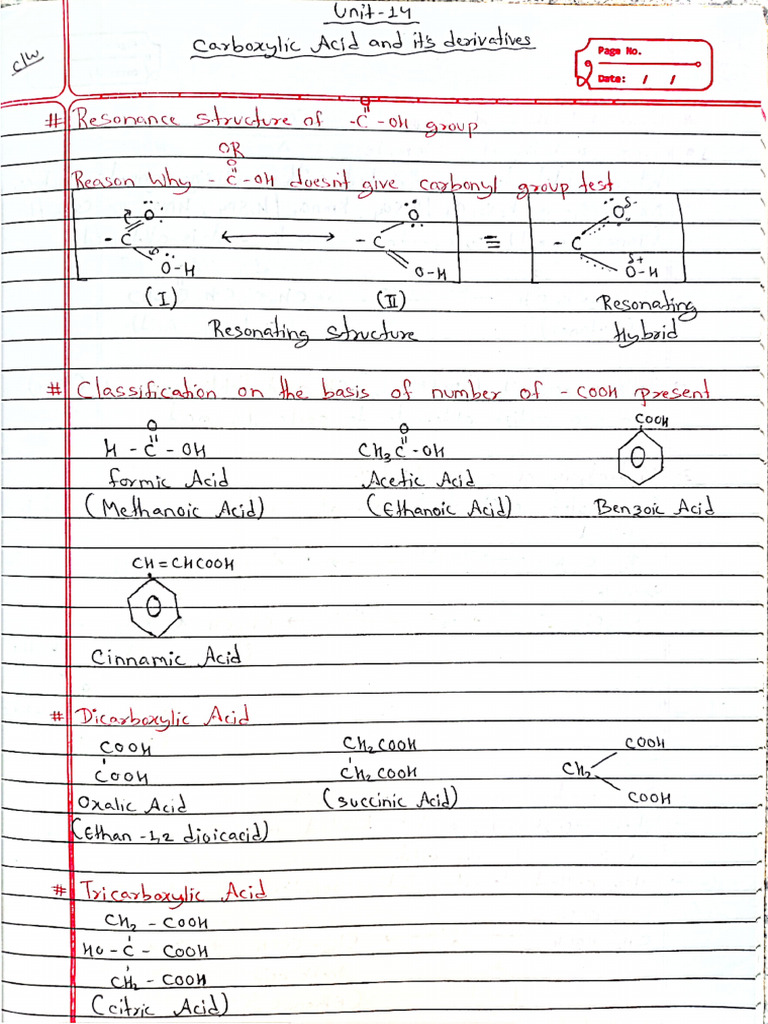 Unit-14
Carboxylic Acid and it's derivatives
c/w
Page No.
Date: / /
# Resonance structure of -C-OH group
O
OR
Reason Why - C-OH doesn't give carbonyl group test
O
- C
O-H
O
- C
O-H
≡
Oδ-
- C
δ+
O-H
(I)
(II)
Resonating
Hybrid
Resonating structure
# Classification on the basis of number of -COOH present
O
H - C - OH
Formic Acid
(Methanoic Acid)
O
CH3C-OH
Acetic Acid
(Ethanoic Acid)
COOH
Benzoic Acid
CH=CHCOOH
Cinnamic Acid
# Dicarboxylic Acid
COOH
COOH
Oxalic Acid
(Ethan -1,2 dioicacid)
CH2COOH
CH2COOH
(succinic Acid)
COOH
CH2
COOH
# Tricarboxylic Acid
CH2 - COOH
HO - C - COOH
CH2 - COOH
(citric Acid)